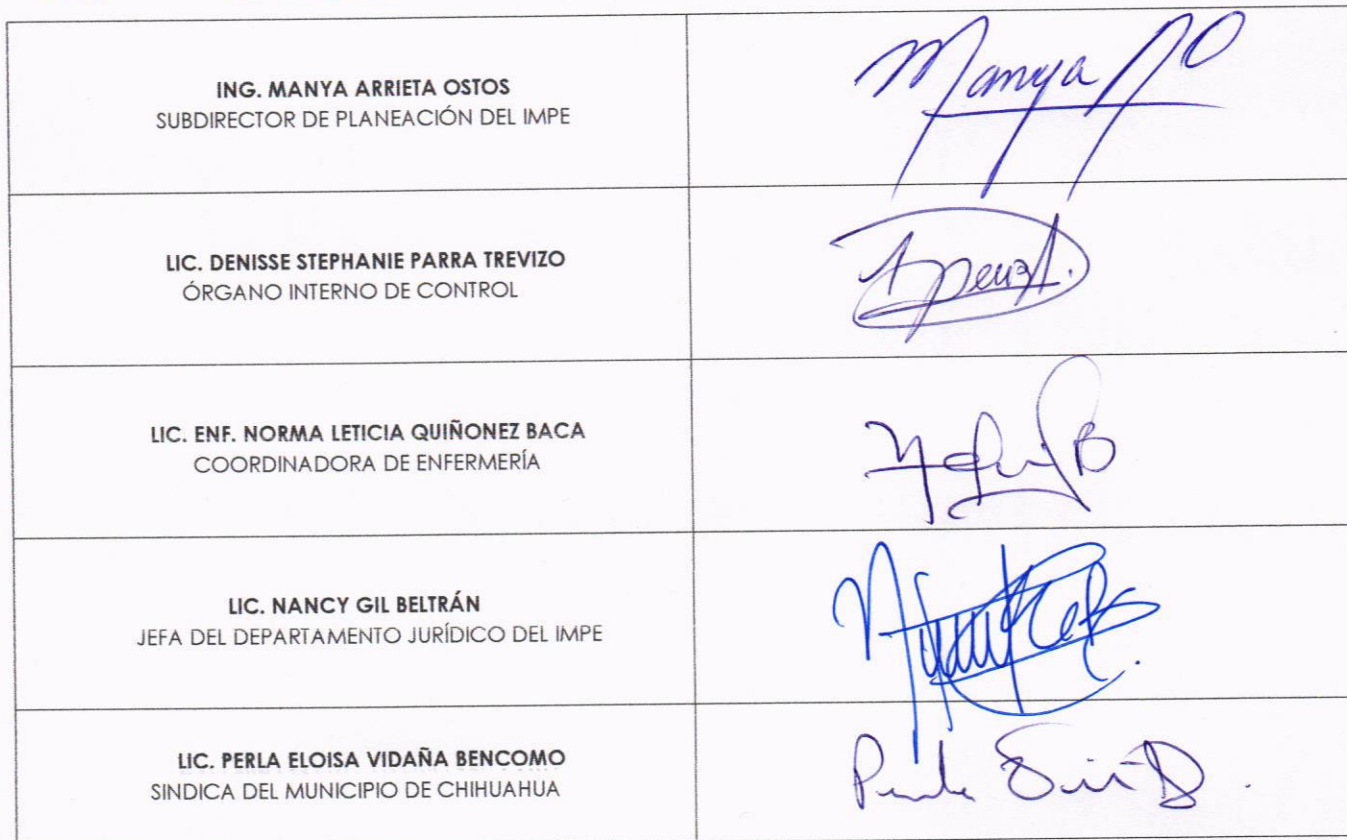 ING. MANYA ARRIETA OSTOS
SUBDIRECTOR DE PLANEACIÓN DEL IMPE
Manya AO
LIC. DENISSE STEPHANIE PARRA TREVIZO
ÓRGANO INTERNO DE CONTROL
LIC. ENF. NORMA LETICIA QUIÑONEZ BACA
COORDINADORA DE ENFERMERÍA
LIC. NANCY GIL BELTRÁN
JEFA DEL DEPARTAMENTO JURÍDICO DEL IMPE
LIC. PERLA ELOISA VIDAÑA BENCOMO
SINDICA DEL MUNICIPIO DE CHIHUAHUA